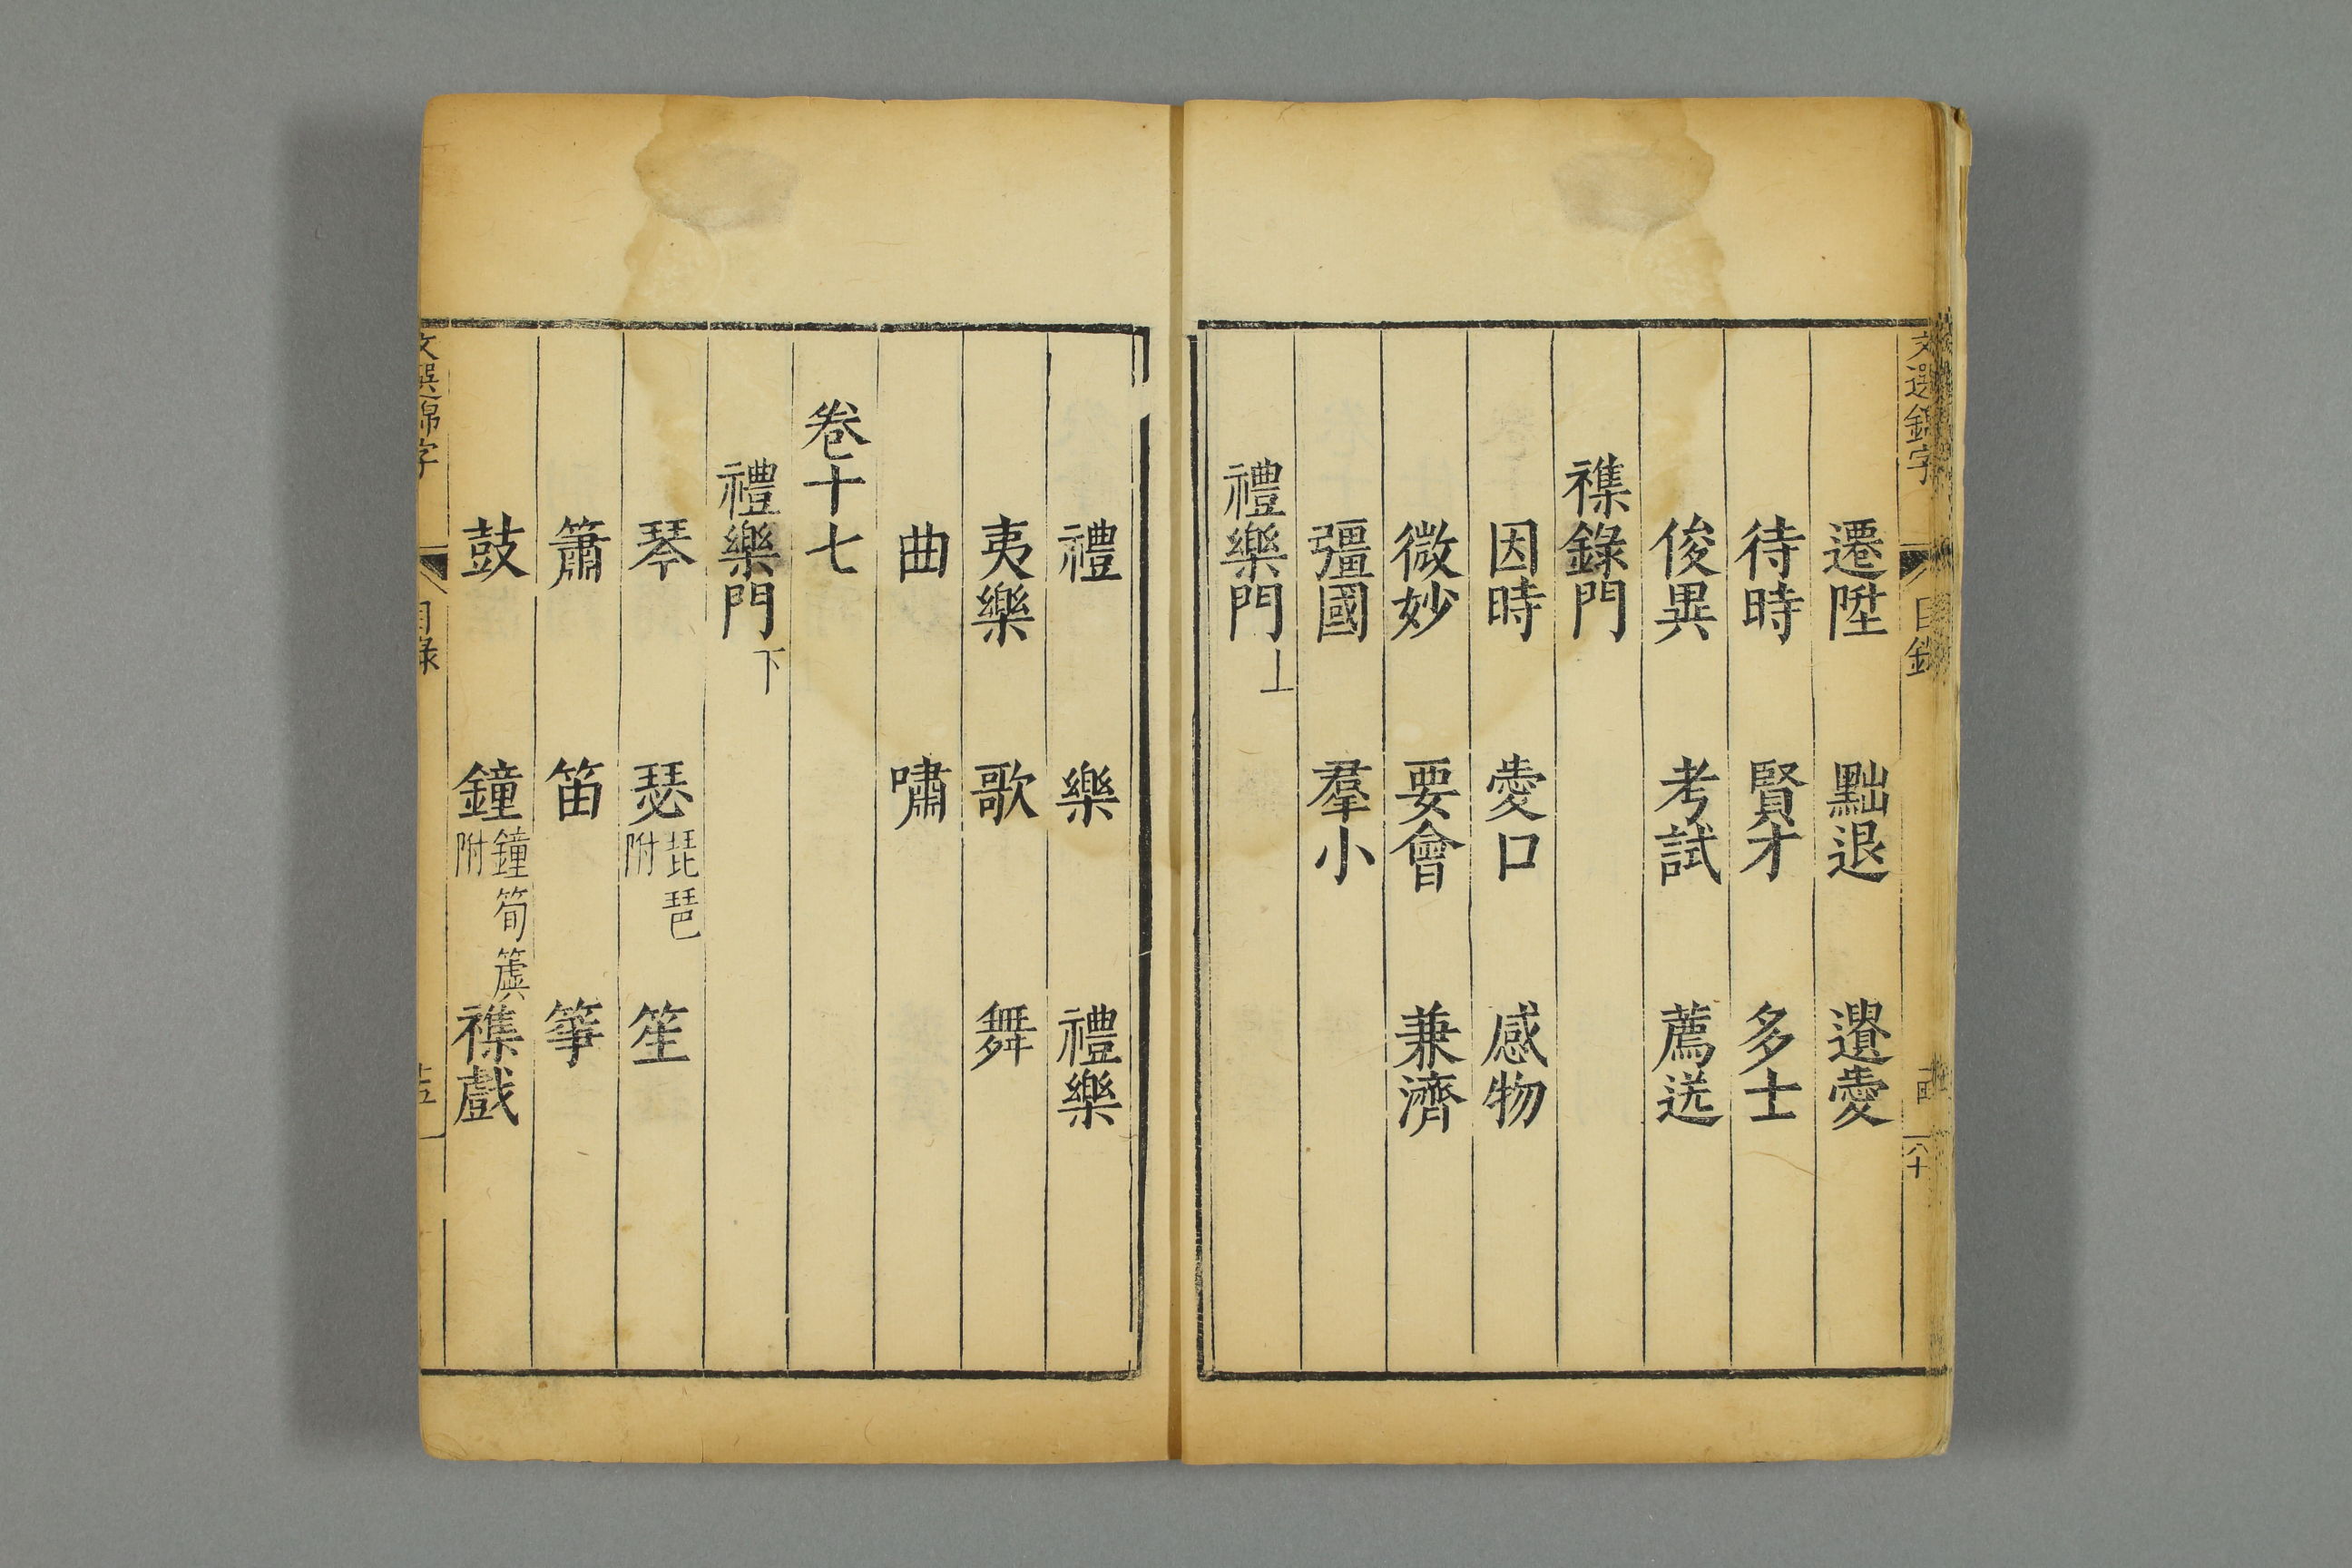 文選錦字
目錄
遷陞 黜退 遺愛
待時 賢才 多士
俊異 考試 薦送
襍錄門
因時 愛口 感物
微妙 要會 兼濟
彊國 羣小
禮樂門上
禮 樂 禮樂
夷樂 歌 舞
曲 嘯
卷十七
禮樂門下
琴 瑟琵琶附 笙
簫 笛 箏
鼓 鐘鐘筍簴附 襍戲
文選錦字
目錄